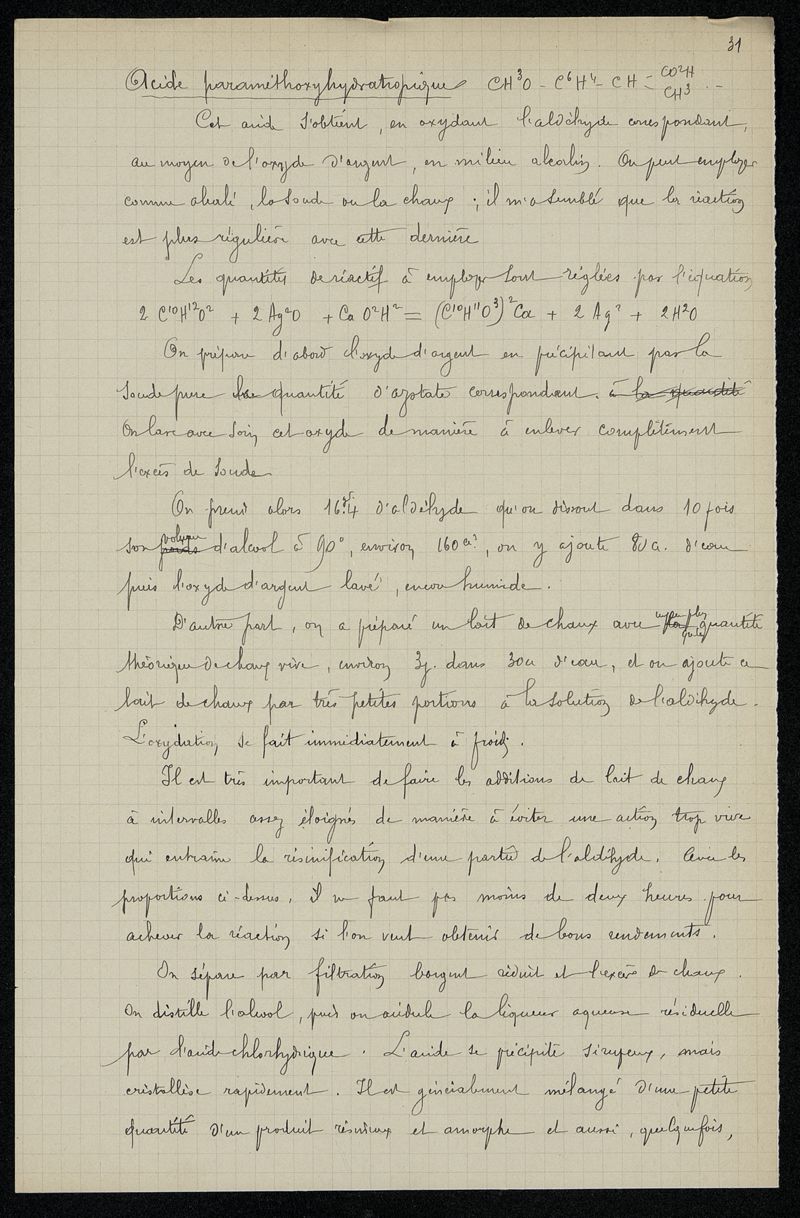 31
Acide paraméthoxyhydratropique CH³O - C⁶H⁴ - CH = CO²H CH³
Cet acide s'obtient, en oxydant l'aldéhyde correspondant,
au moyen de l'oxyde d'argent, en milieu alcalin. On peut employer
comme alcali, la soude ou la chaux ; il m'a semblé que la réaction
est plus régulière avec cette dernière
Les quantités de réactif à employer sont réglées par l'équation
2 C¹⁰H¹²O² + 2 Ag²O + Ca O²H² = (C¹⁰H¹¹O³)²Ca + 2 Ag² + 2H²O
On prépare d'abord l'oxyde d'argent en précipitant par la
soude pure la quantité d'azotate correspondant. à la quantité
On lave avec soin cet oxyde de manière à enlever complètement
l'excès de soude
On prend alors 16gr.4 d'aldéhyde qu'on dissout dans 10 fois
son poids volume d'alcool à 90°, environ 160 cc, on y ajoute 80 cc. d'eau
puis l'oxyde d'argent lavé, encore humide.
D'autre part, on a préparé un lait de chaux avec un peu plus que la quantité
théorique de chaux vive, environ 3g. dans 30cc d'eau, et on ajoute ce
lait de chaux par très petites portions à la solution de l'aldéhyde.
L'oxydation se fait immédiatement à froid.
Il est très important de faire les additions de lait de chaux
à intervalles assez éloignés de manière à éviter une action trop vive
qui entraîne la résinification d'une partie de l'aldéhyde. Avec les
proportions ci-dessus, il ne faut pas moins de deux heures pour
achever la réaction si l'on veut obtenir de bons rendements.
On sépare par filtration l'argent réduit et l'excès de chaux.
On distille l'alcool, puis on acidule la liqueur aqueuse résiduelle
par l'acide chlorhydrique. L'acide se précipite sirupeux, mais
cristallise rapidement. Il est généralement mélangé d'une petite
quantité d'un produit résineux et amorphe et aussi, quelquefois,